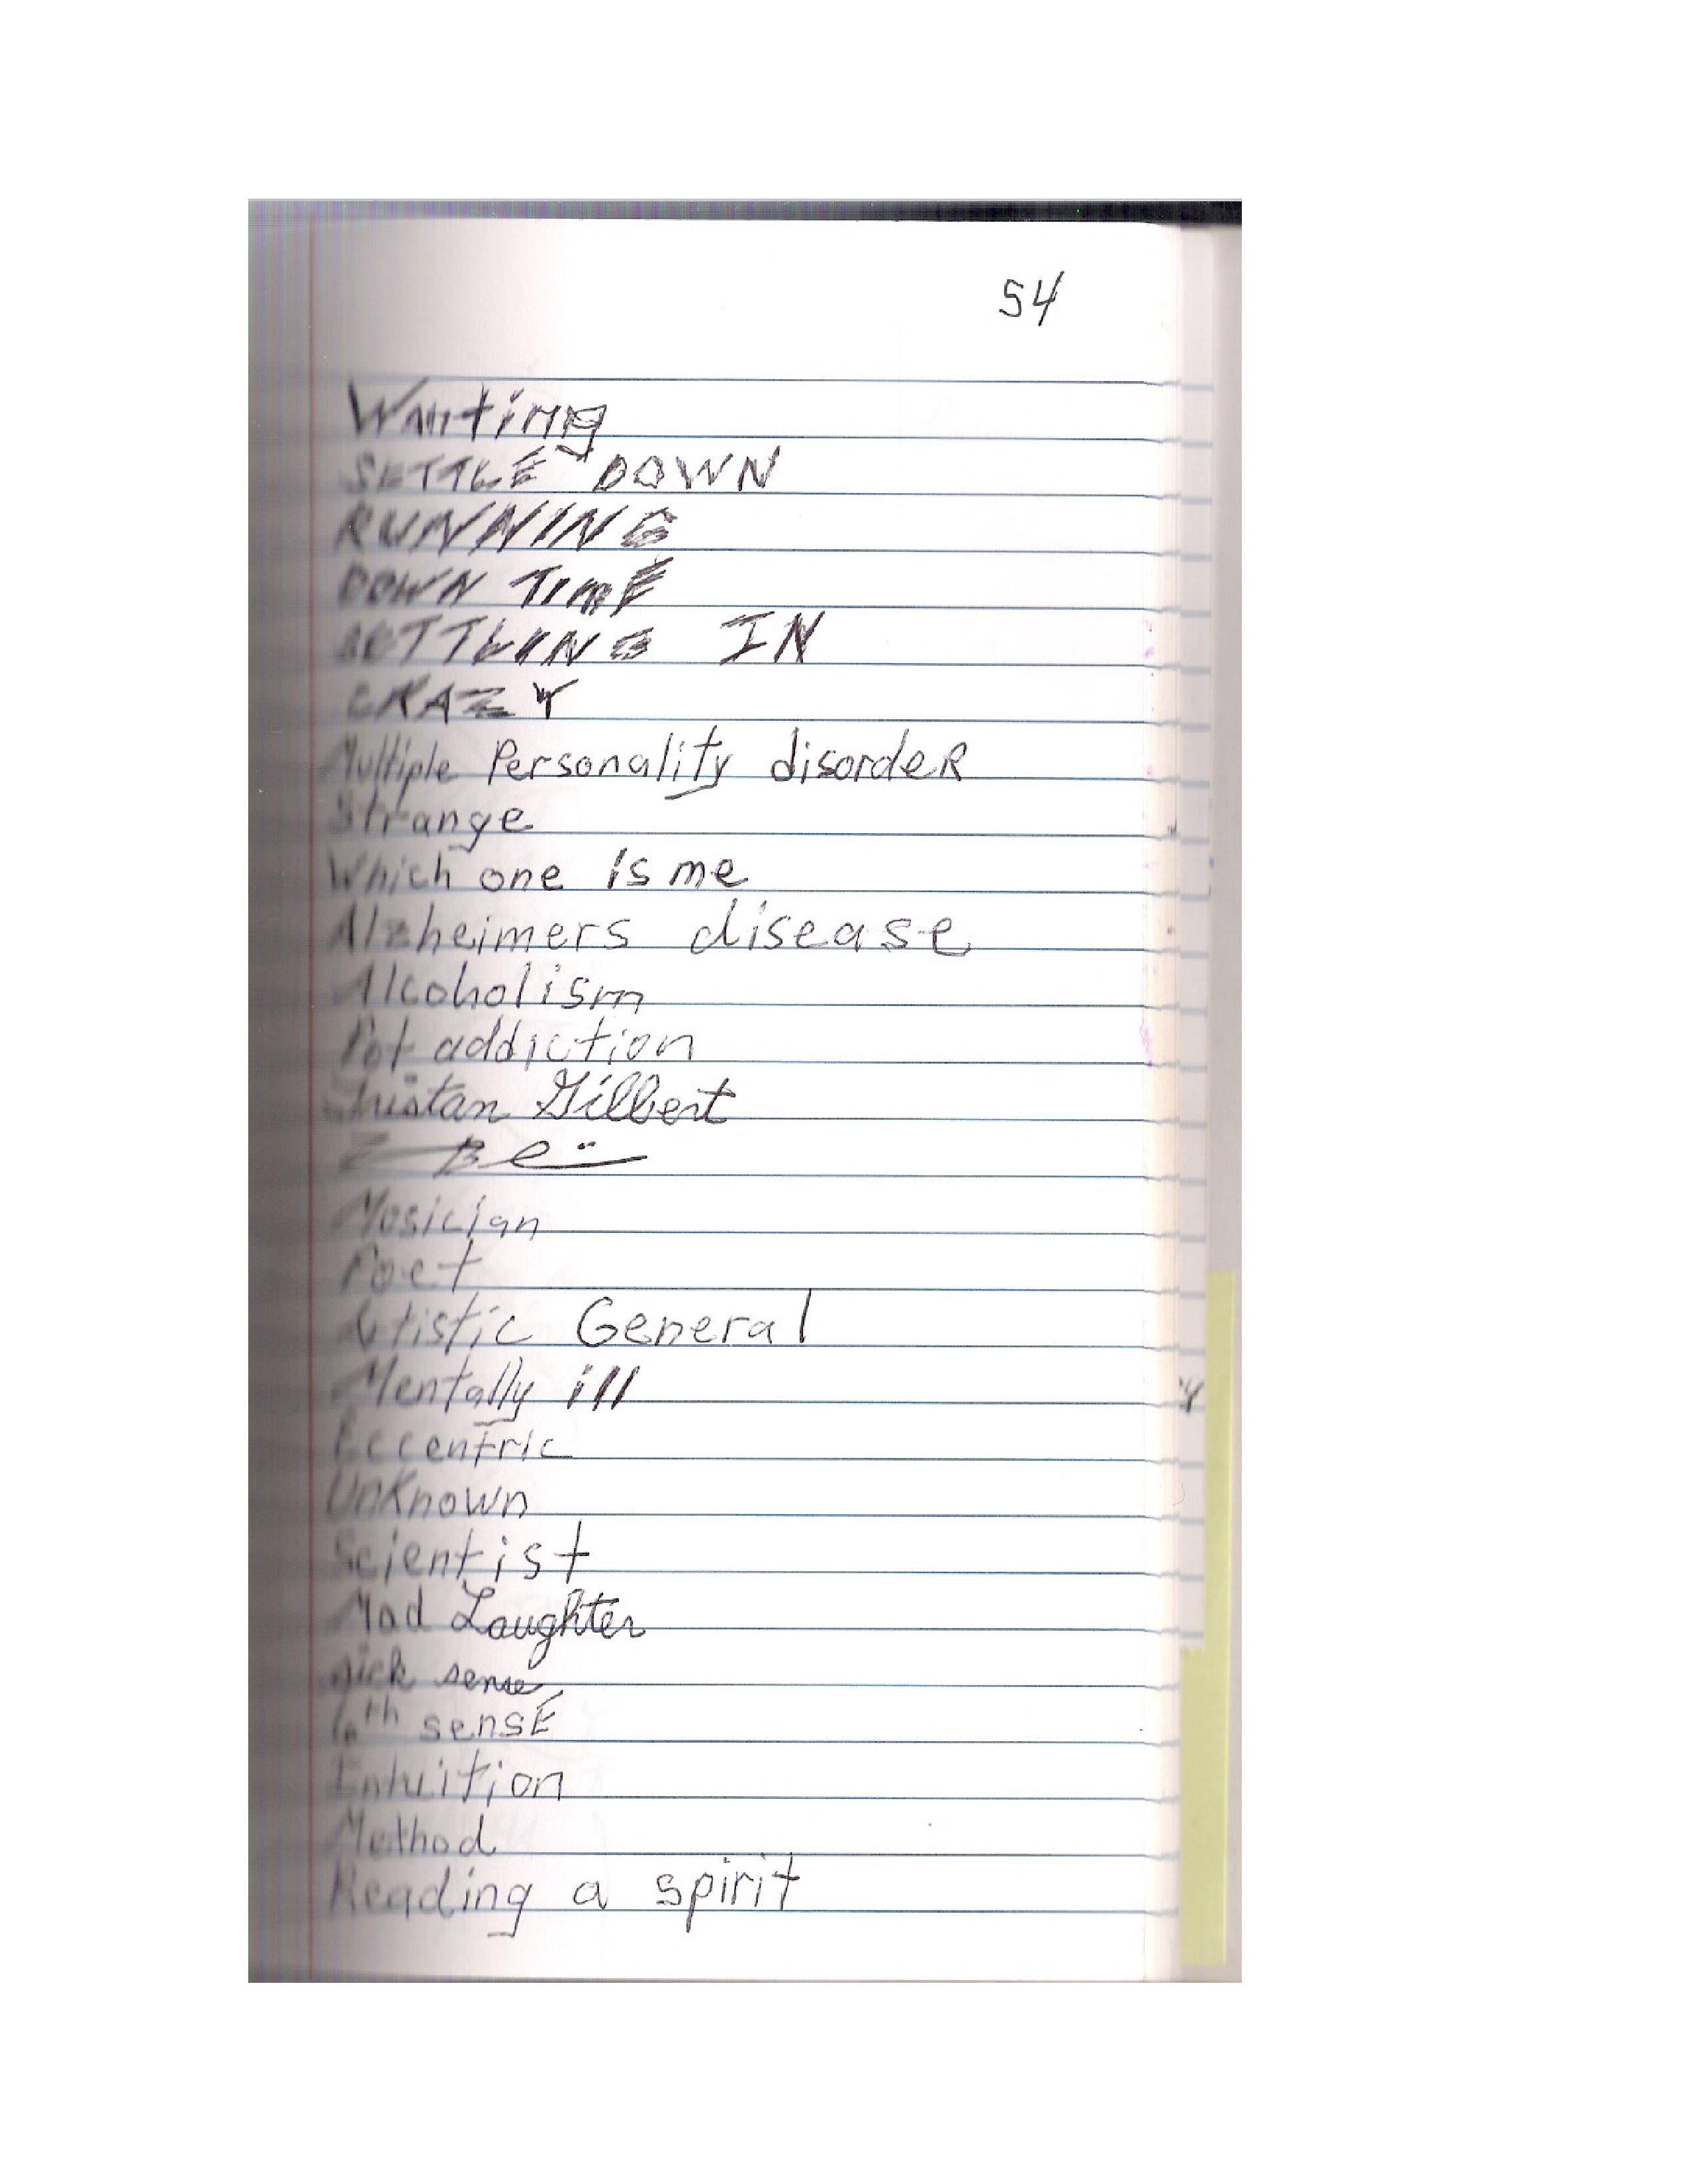 54
Wanting
SETTLE DOWN
RUNNING
DOWN TIME
SETTLING IN
CRAZY
Multiple Personality disordeR
Strange
Which one is me
Alzheimers disease
Alcoholism
Pot addiction
Tristan Gilbert
Musician
Poet
Artistic General
Mentally ill
Eccentric
UnKnown
Scientist
Mad Laughter
sick sense
6th sensE
Intuition
Method
Reading a spirit